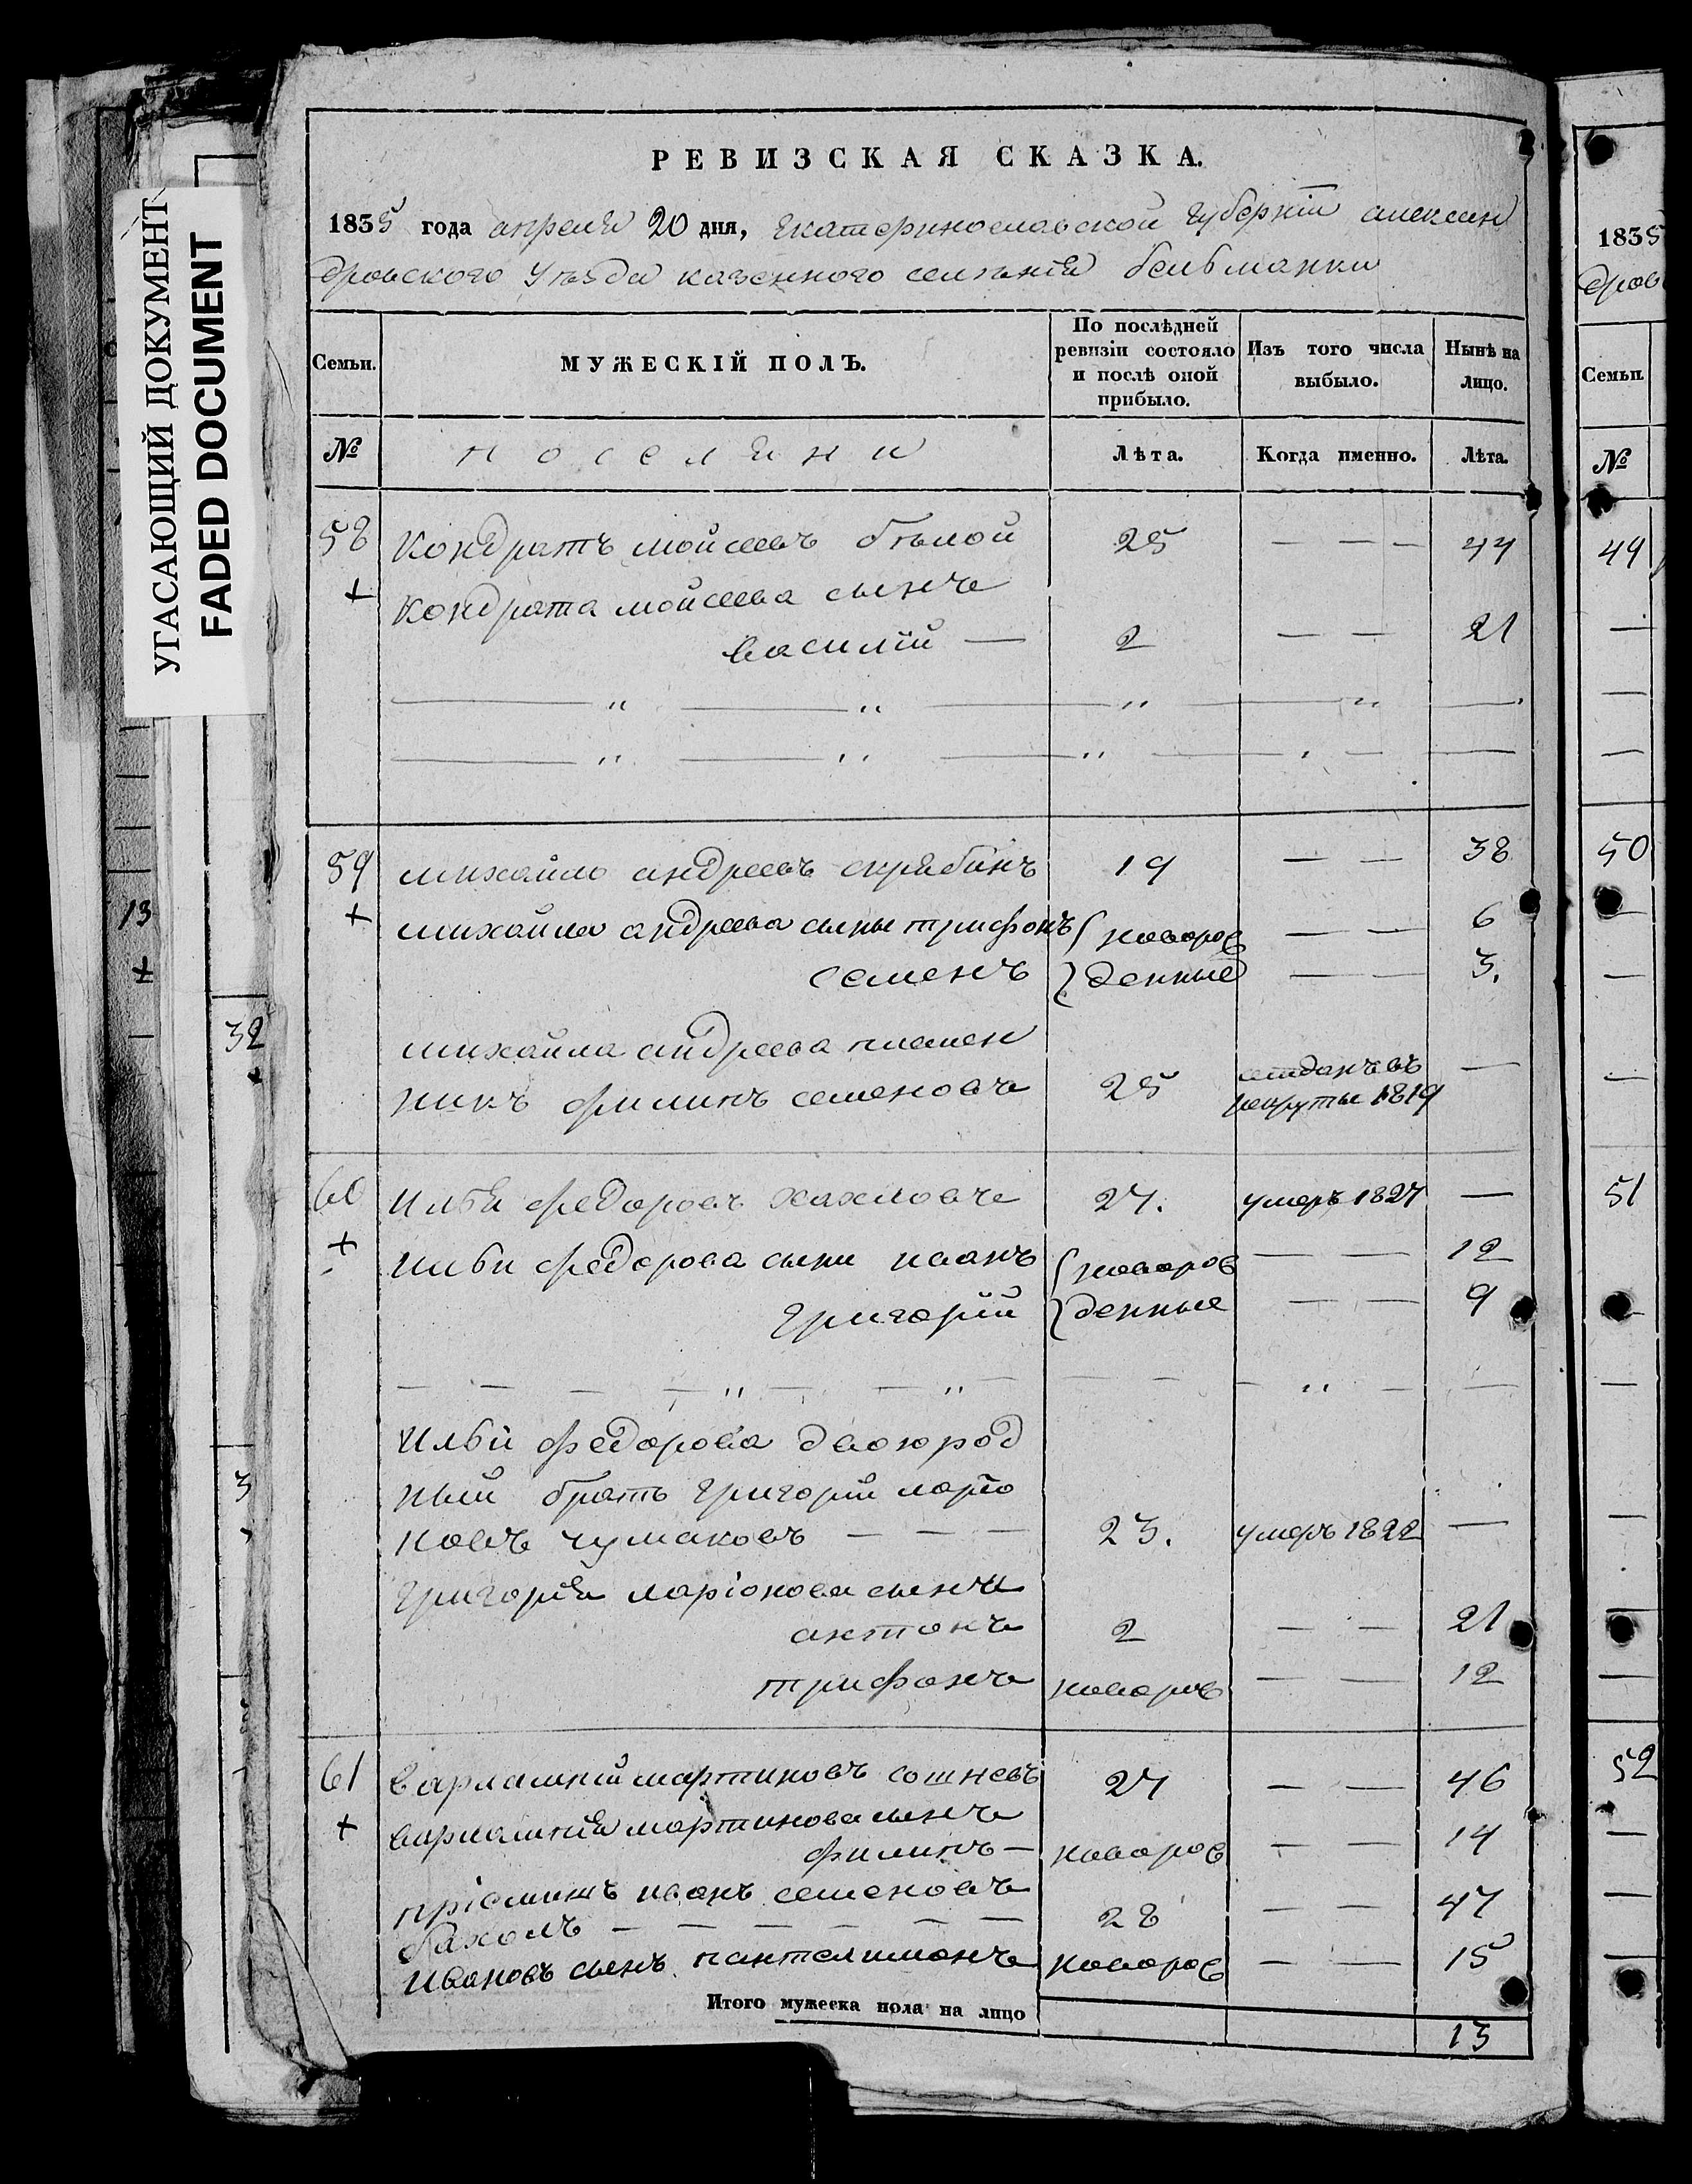 УГАСАЮЩИЙ ДОКУМЕНТ
FADED DOCUMENT
РЕВИЗСКАЯ СКАЗКА.
1835 года апреля 20 дня, Екатеринославской губернїи алексан
дровского Уѣзда казенного селенїя бельманки
Семьи.
МУЖЕСКІЙ ПОЛЪ.
По послѣдней ревизіи состояло и послѣ оной прибыло.
Изъ того числа выбыло.
Нынѣ на лицо.
№ поселяни Лѣта. Когда именно. Лѣта.
58 Кондратъ мойсеевъ бѣлой 25 — — — 44
+ Кондрата мойсеева сынъ
василїй — 2 — — 21
59 михайло андреевъ скрябинъ 19 — — 38
+ михайла андреева сыны трифонъ { новорож — — 6
семенъ } денные — — 3.
михайла андреева племен
никъ филипъ семеновъ 25 отданъ въ рекруты 1819 —
60 Илья федоровъ хахловъ 27. умеръ 1827 —
+ Ильи федорова сыни иванъ { новорож — — 12
григорїй } денные — — 9
Ильи федорова двоюрод
ный братъ григорїй ларїо
новъ чумаковъ — — — 23. умеръ 1822 —
григорїя ларїонова сынъ
антонъ 2 — — 21
трифонъ новорож — — 12
61 варлампїй мартиновъ сошневъ 27 — — 46
+ варлампїя мартинова сынъ
филипъ — новорож — — 14
прїемишъ иванъ семеновъ
— — — — — — 28 — — 47
Ивановъ сынъ пантелимонъ новорож — — 15
Итого мужеска пола на лицо
13
13
+
32
3
1835
дров
Семьи.
№
49
50
51
52